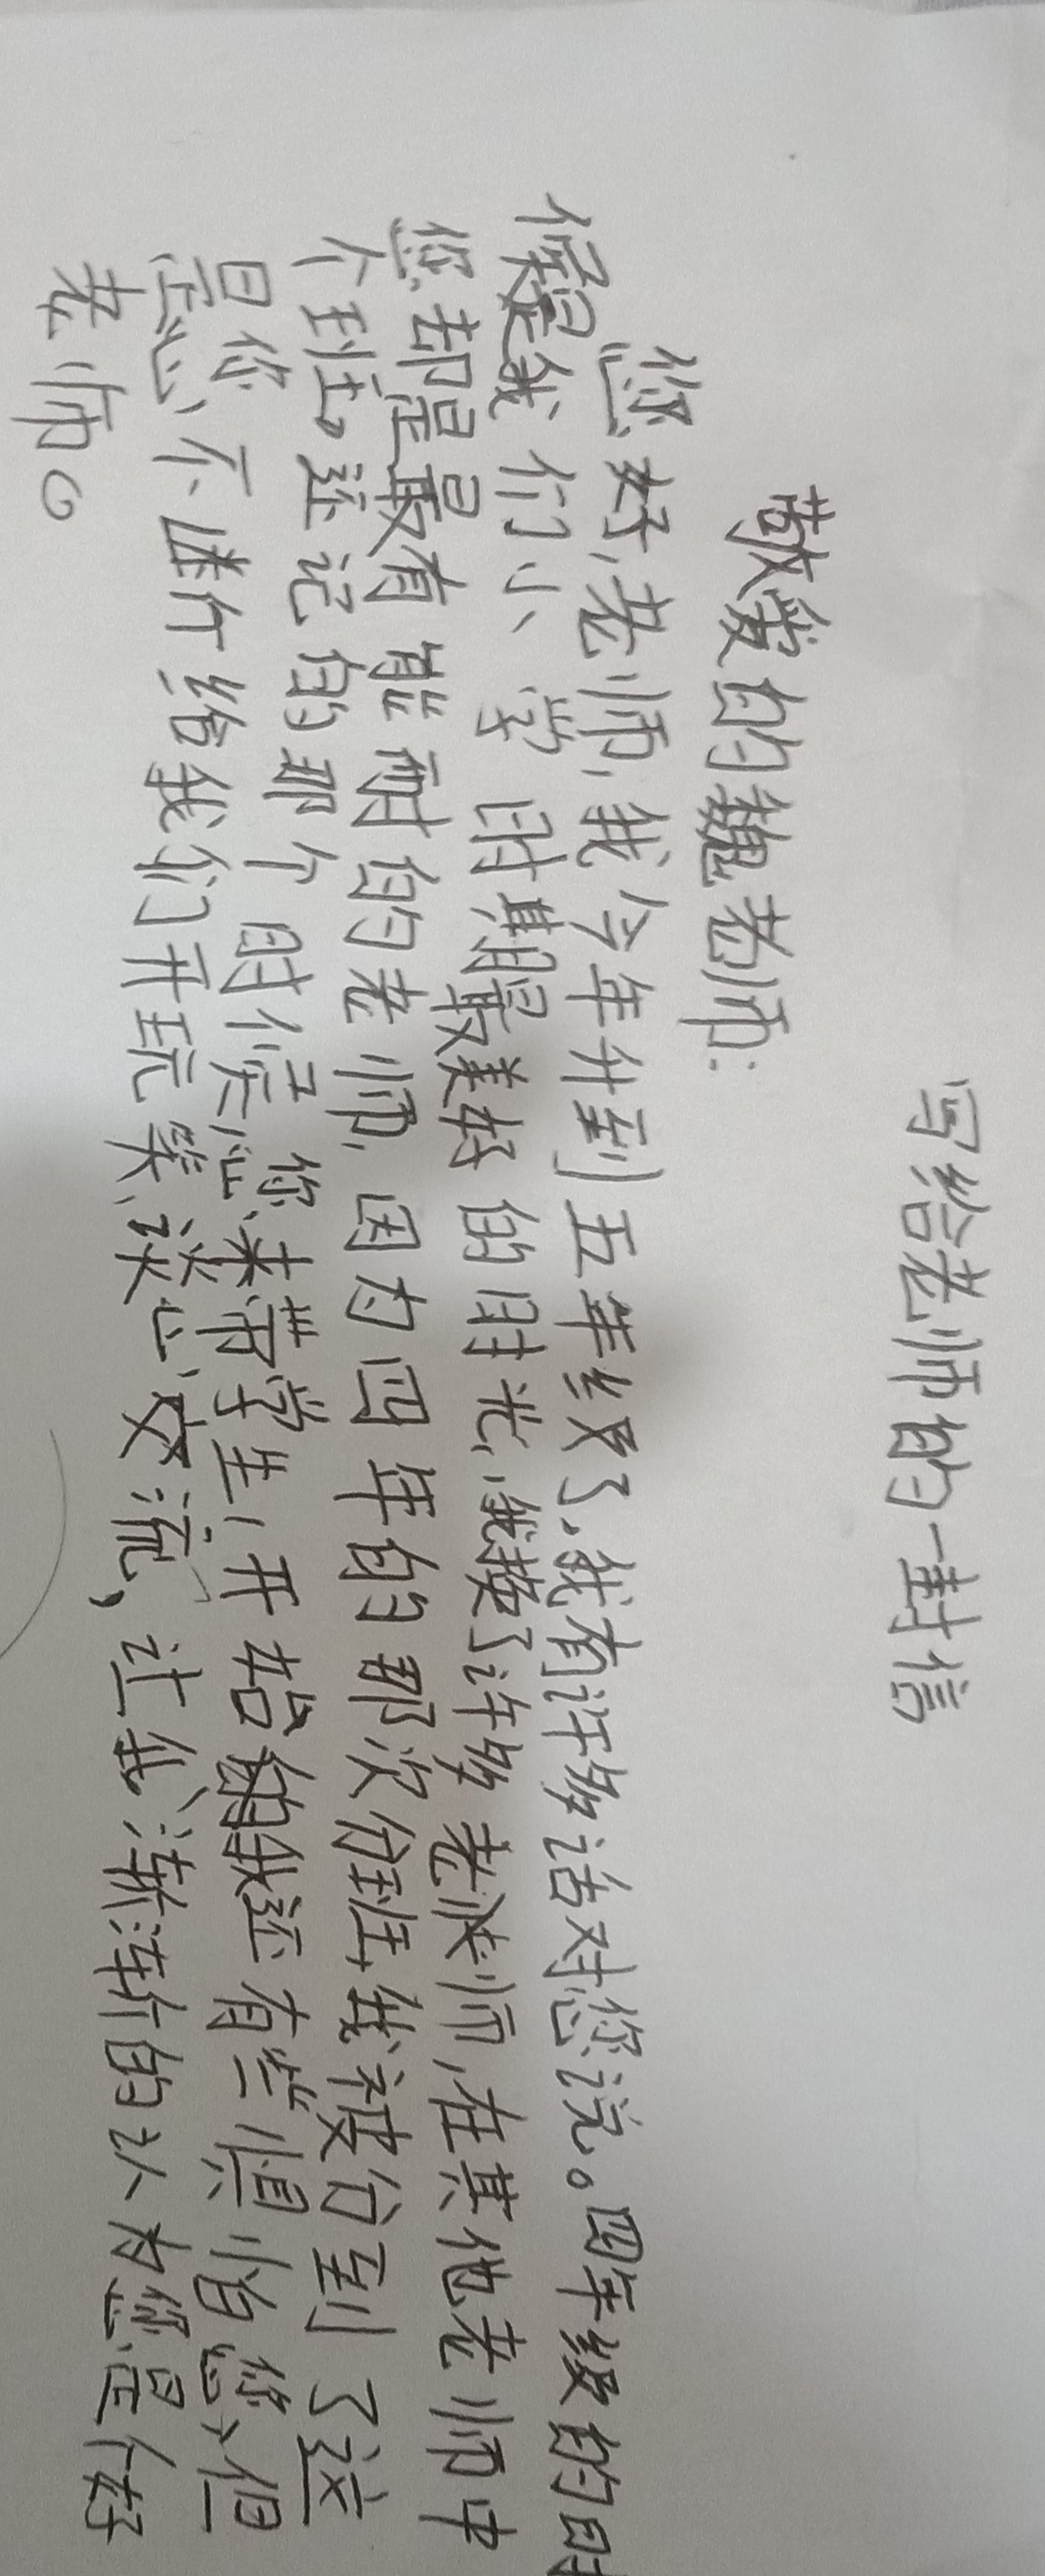 写给老师的一封信
敬爱的魏老师:
您好,老师,我今年升到五年级了.我有许多话对您说。四年级的时
候是我们小学时期最美好的时光,我换了许多老师,在其他老师中
您却是最有能耐的老师,因为四年的那次分班,我被分到了这
个班,还记的那个时候您来带学生,开始我还有些惧怕您,但
是你不进行给我们开玩笑,谈心,交流,让我渐渐的认为您是个好
老师。